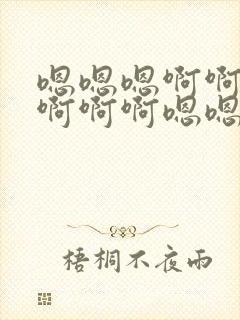 嗯嗯嗯啊啊
啊啊啊嗯嗯
梧桐不夜雨